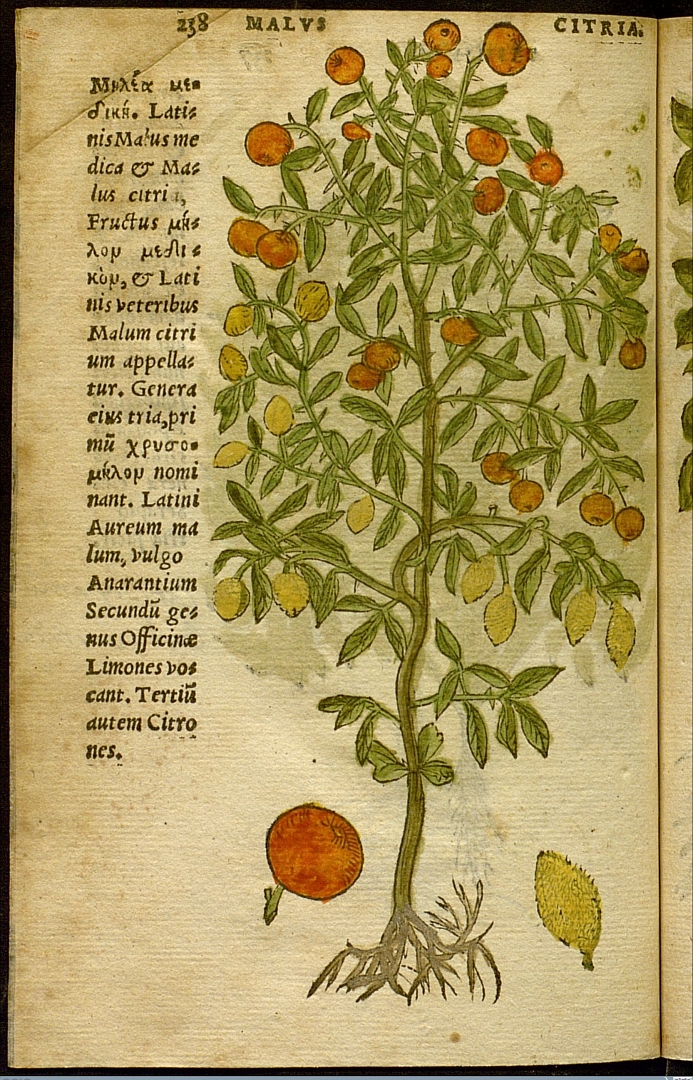 238 MALVS CITRIA.
Μηλέα με⸗
δική. Lati⸗
nis Malus me
dica & Ma⸗
lus citri
Fructus μῆ⸗
λον μεδι⸗
κὸν, & Lati
nis veteribus
Malum citri
um appella⸗
tur. Genera
eius tria, pri
mũ χρυσο⸗
μῆλον nomi
nant. Latini
Aureum ma
lum, vulgo
Anarantium
Secundũ ge⸗
nus Officinæ
Limones vo⸗
cant. Tertiũ
autem Citro
nes.